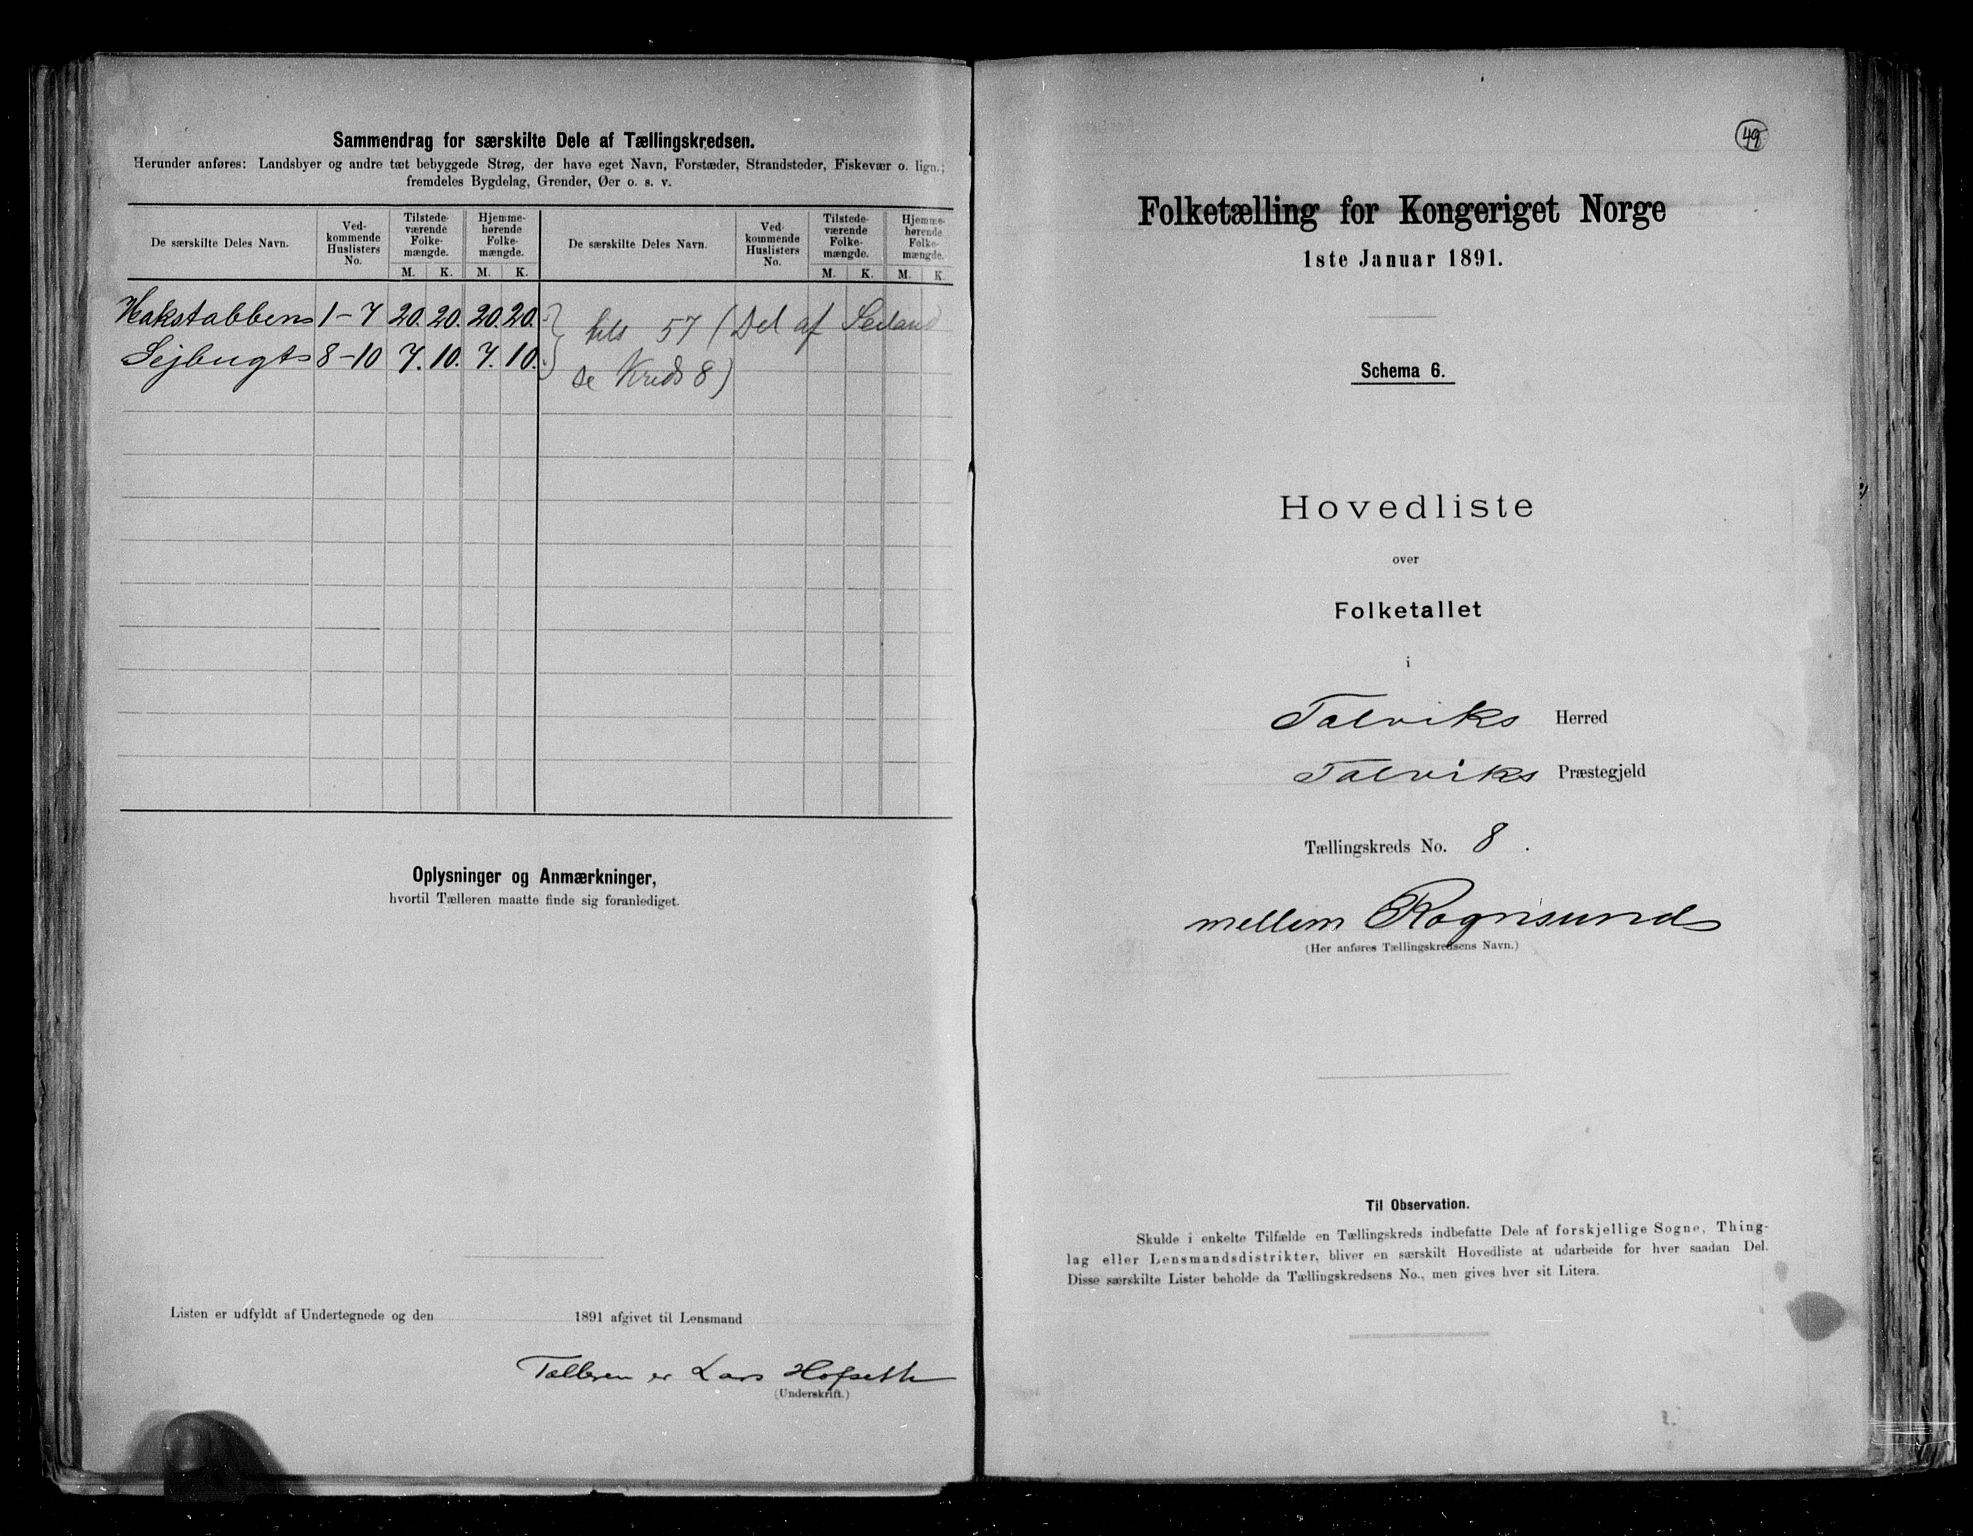 Sammendrag for særskilte Dele af Tællingskredsen.
Herunder anføres: Landsbyer og andre tæt bebyggede Strøg, der have eget Navn, Forstæder, Strandsteder, Fiskevær o. lign.;
fremdeles Bygdelag, Grender, Øer o. s. v.
De særskilte Deles Navn. Ved-kommende Huslisters No. Tilstede-værende Folke-mængde. Hjemme-hørende Folke-mængde. De særskilte Deles Navn. Ved-kommende Huslisters No. Tilstede-værende Folke-mængde. Hjemme-hørende Folke-mængde.
M. K. M. K. M. K. M. K.
Hakstabben 1-7 20. 20. 20. 20.
57 (Del af Seiland
Sejbugt 8-10 7. 10. 7. 10.
se Kreds 8)
Oplysninger og Anmærkninger,
hvortil Tælleren maatte finde sig foranlediget.
Listen er udfyldt af Undertegnede og den 1891 afgivet til Lensmand
Tælleren er Lars Hofseth
(Underskrift.)
49
Folketælling for Kongeriget Norge
1ste Januar 1891.
Schema 6.
Hovedliste
over
Folketallet
i
Talviks Herred
Talviks Præstegjeld
Tællingskreds No. 8.
mellem Rognsund
(Her anføres Tællingskredsens Navn.)
Til Observation.
Skulde i enkelte Tilfælde en Tællingskreds indbefatte Dele af forskjellige Sogne, Thing-
lag eller Lensmandsdistrikter, bliver en særskilt Hovedliste at udarbeide for hver saadan Del.
Disse særskilte Lister beholde da Tællingskredsens No., men gives hver sit Litera.